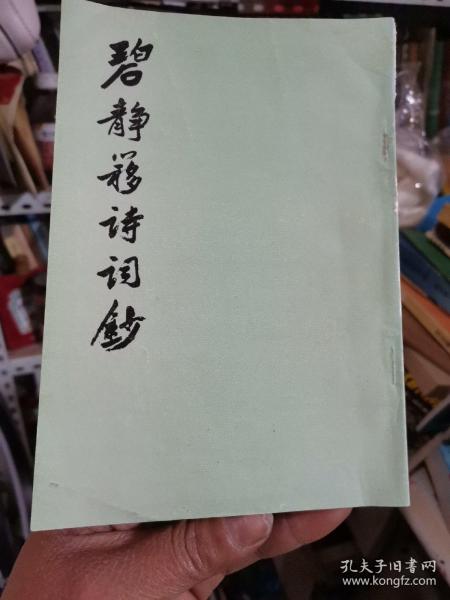 碧静簃诗词钞
孔夫子旧书网
www.kongfz.com